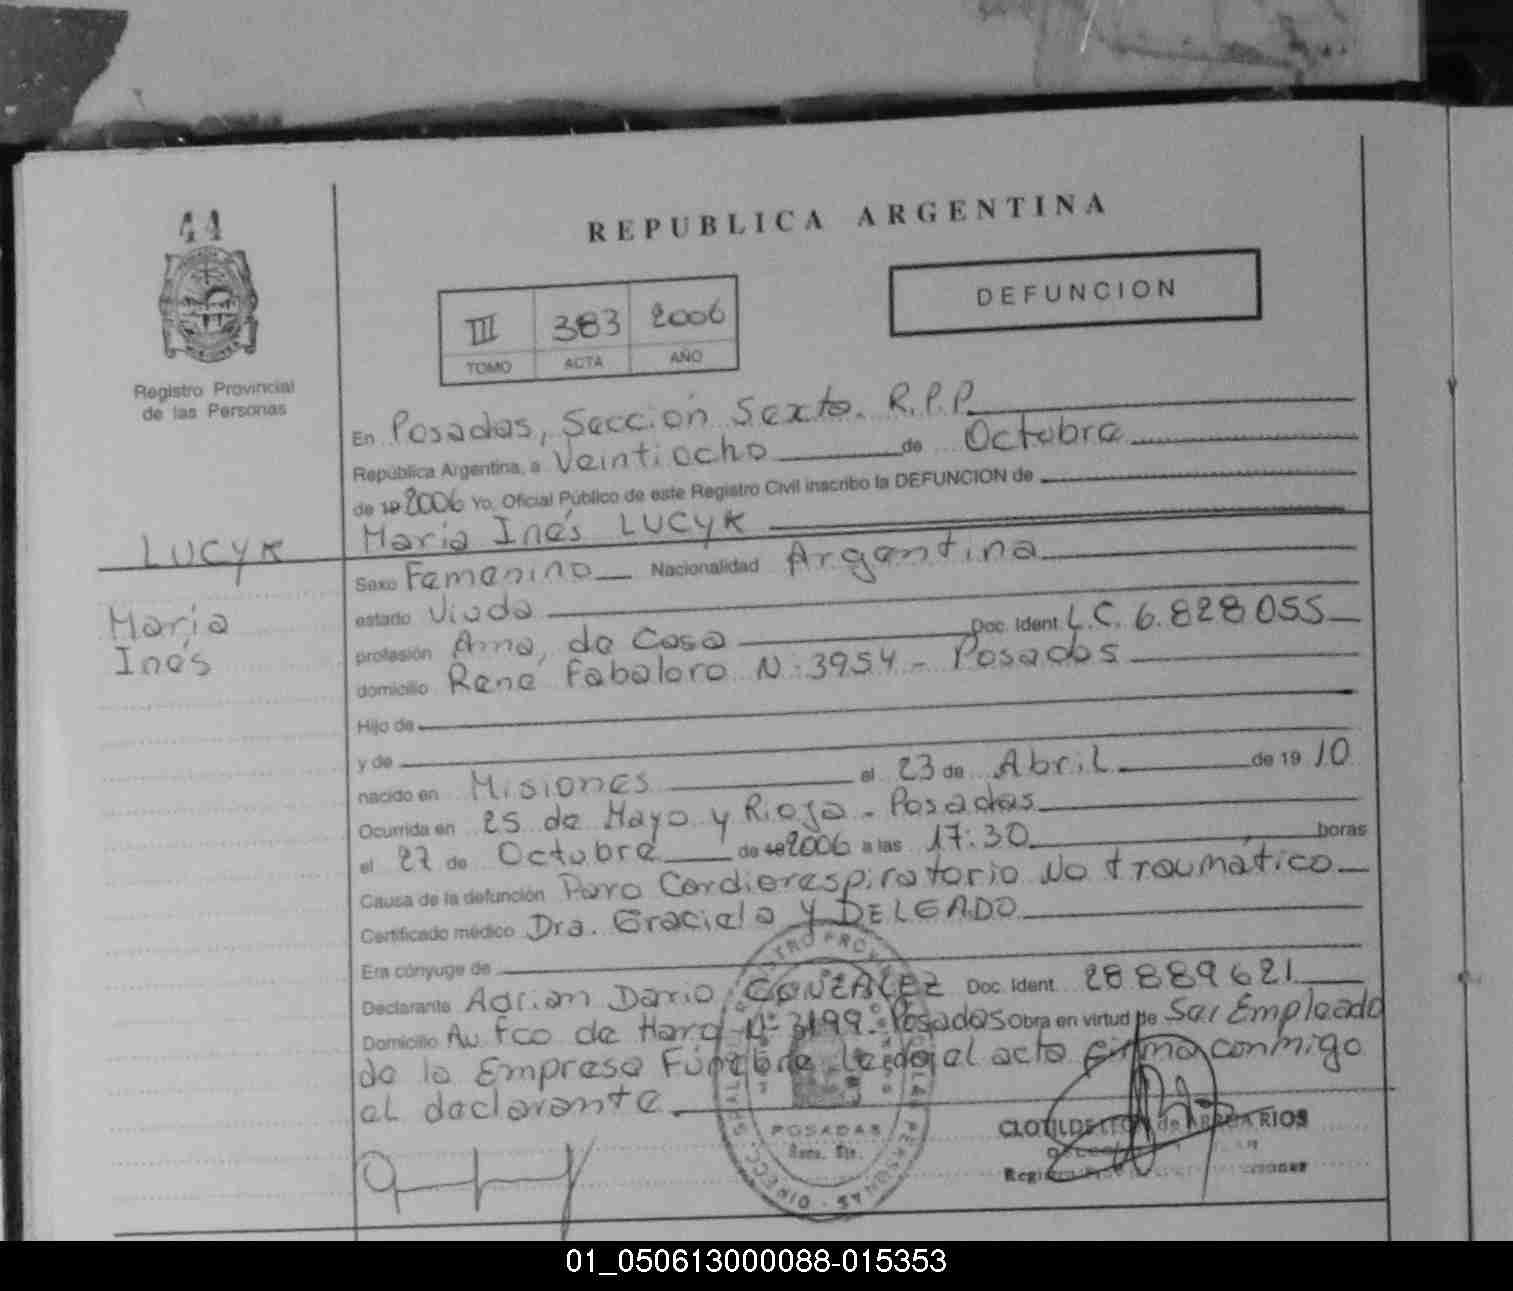 44
REPUBLICA ARGENTINA
DEFUNCION
III 383 2006
TOMO ACTA AÑO
Registro Provincial
de las Personas
En Posadas, Sección Sexta. R.P.P.
República Argentina, a Veintiocho de Octubre
de 19 2006 Yo, Oficial Público de este Registro Civil inscribo la DEFUNCION de
María Inés LUCYK
LUCYK
María
Inés
Sexo Femenino Nacionalidad Argentina
estado Viuda
profesión Ama, de Casa Doc. Ident. L.C. 6.828055
domicilio Rene Fabaloro N: 3954 - Posadas
Hijo de
y de
nacido en Misiones el 23 de Abril de 19 10
Ocurrida en 25 de Mayo y Rioja - Posadas
el 27 de Octubre de 19 2006 a las 17:30 horas
Causa de la defunción Paro Cardiorespiratorio No traumático
Certificado médico Dra. Graciela Y DELGADO
Era cónyuge de
Declarante Adrian Dario GONZALEZ Doc. Ident. 28889621
Domicilio Av Fco de Haro Nº 3199 - Posadas Obra en virtud de Ser Empleado
de la Empresa Fúnebre leída el acta firma conmigo
el declarante
POSADAS
CLOTILDE de RIOS